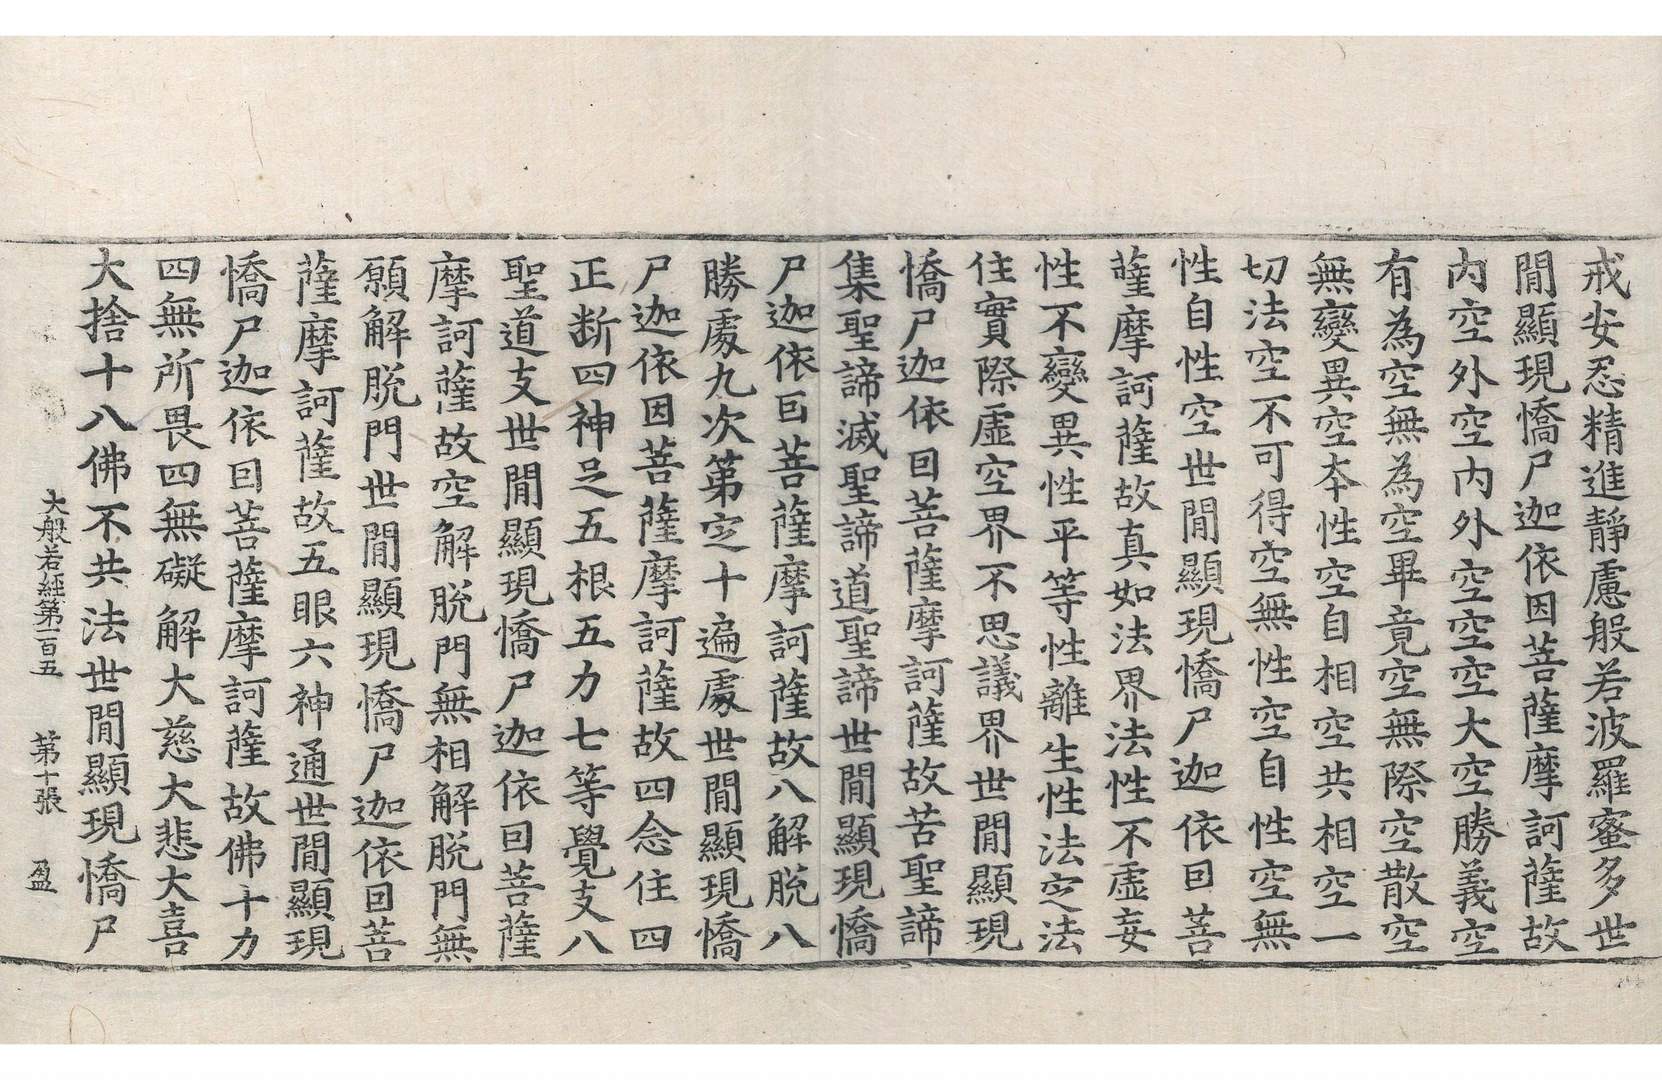 戒安忍精進靜慮般若波羅蜜多世
閒顯現憍尸迦依因菩薩摩訶薩故
內空外空內外空空空大空勝義空
有為空無為空畢竟空無際空散空
無變異空本性空自相空共相空一
切法空不可得空無性空自性空無
性自性空世閒顯現憍尸迦依因菩
薩摩訶薩故真如法界法性不虛妄
性不變異性平等性離生性法定法
住實際虛空界不思議界世閒顯現
憍尸迦依因菩薩摩訶薩故苦聖諦
集聖諦滅聖諦道聖諦世閒顯現憍
尸迦依因菩薩摩訶薩故八解脫八
勝處九次第定十遍處世閒顯現憍
尸迦依因菩薩摩訶薩故四念住四
正斷四神足五根五力七等覺支八
聖道支世閒顯現憍尸迦依因菩薩
摩訶薩故空解脫門無相解脫門無
願解脫門世閒顯現憍尸迦依因菩
薩摩訶薩故五眼六神通世閒顯現
憍尸迦依因菩薩摩訶薩故佛十力
四無所畏四無礙解大慈大悲大喜
大捨十八佛不共法世閒顯現憍尸
大般若經第一百五　第十張　盈